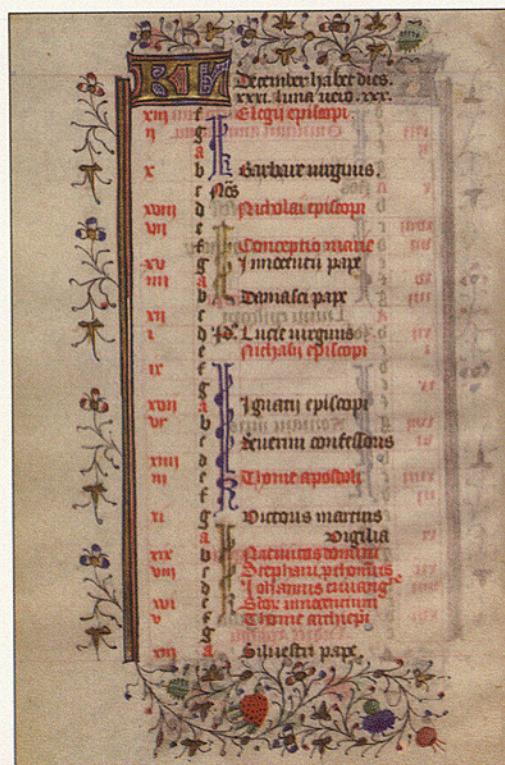 KL
December habet dies.
xxxi. luna vero. xxx.
xiii f Elegii episcopi
ii g
a
x b Barbare virginis.
c Nōs
xviii d Nicholai episcopi
vii e
f Conceptio marie
xv g Innocentii pape
iiii a
b Damasci pape
xii c
i d Id. Lucie virginis
e Nichasii episcopi
ix f
g
xvii a Ignatii episcopi
vi b
c Severini confessoris
xiiii d
iii e Thome apostoli
f
xi g Victoris martiris
a Vigilia
xix b Nativitas domini
viii c Stephani
d Johannis evang
xvi e Scōr innocentum
v f Thome archiepi
g
xiii a Silvestri pape